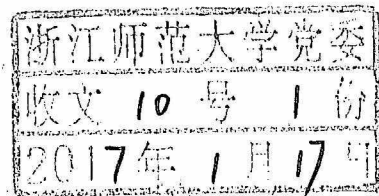 浙江师范大学党委
收文 10 号 1 份
2017年 1 月 17 日